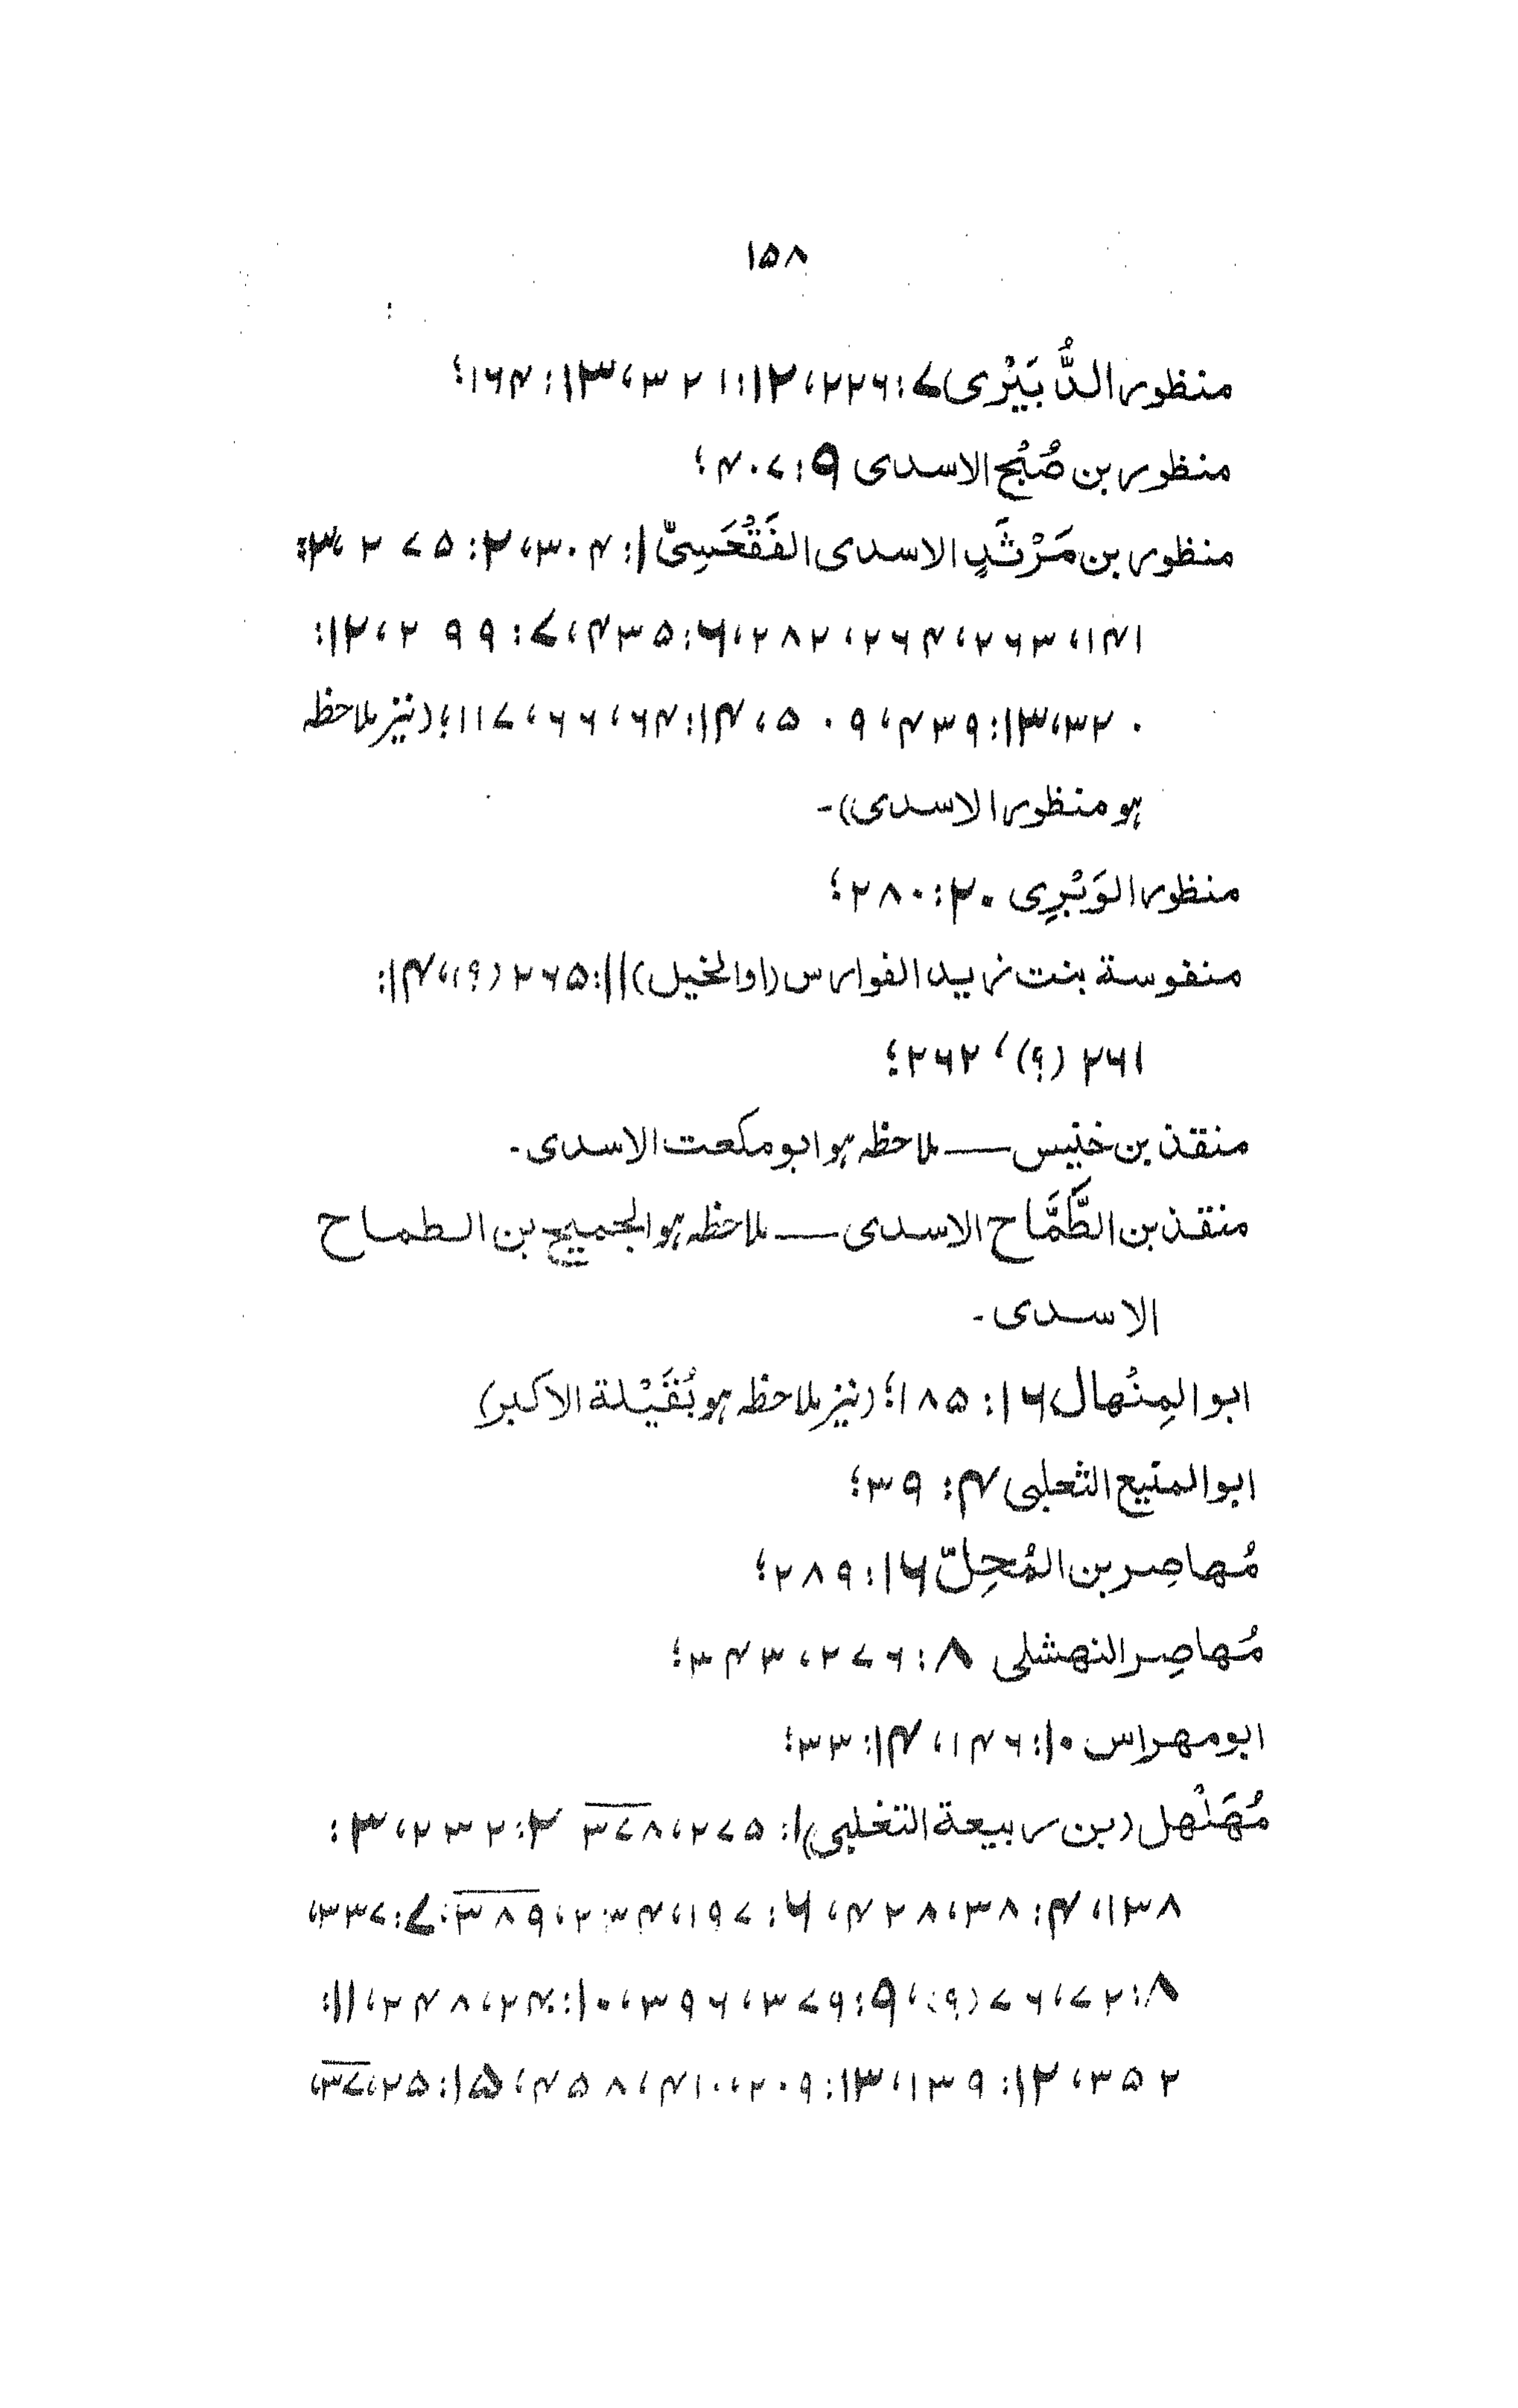 ۱۵۸
منظور الدُّبَیْری ۷: ۲۲۶، ۱۲: ۳۲۱، ۱۳: ۱۶۴؛
منظور بن صُبْح الاسدی ۹: ۴۰۷؛
منظور بن مَرْثَدٍ الاسدی الفَقْعَسِیّ ۱: ۳۰۴، ۲: ۲۷۵، ۳:
۱۴۱، ۲۶۳، ۲۶۴، ۲۸۲، ۶: ۴۳۵، ۷: ۲۹۹، ۱۲:
۳۲۰، ۱۳: ۴۳۹، ۵۰۹، ۱۴: ۶۴، ۶۶، ۱۱۷؛ (نیز ملاحظہ
ہو منظور الاسدی)۔
منظور الوَبْرِی ۲۰: ۲۸۰؛
منفوسة بنت زید الفوارس (او الخیل) ۱۱: ۲۶۵ (؟)، ۱۴:
۲۶۱ (؟)، ۲۶۲؛
منقذ بن خنیس ـــ ملاحظہ ہو ابو مکعت الاسدی۔
منقذ بن الطَّمَّاح الاسدی ـــ ملاحظہ ہو الجمیح بن الطماح
الاسدی۔
ابو المِنْهال ۱۶: ۱۸۵؛ (نیز ملاحظہ ہو بُقَیْلة الاکبر)
ابو المتیع الثعلبی ۴: ۳۹؛
مُهاصِر بن المُحِلّ ۱۶: ۲۸۹؛
مُهاصِر النهشلی ۸: ۲۷۶، ۳۴۳؛
ابو مهراس ۱۰: ۱۴۶، ۱۴: ۳۳؛
مُهَلْهِل (بن ربیعة التغلبی) ۱: ۲۷۵، ۳۷۸ ۲: ۲۳۲، ۳:
۱۳۸، ۴: ۳۸، ۴۲۸، ۶: ۱۹۷، ۲۳۴، ۳۸۹، ۷: ۳۳۷،
۸: ۷۲، ۷۶ (؟)، ۹: ۳۷۶، ۳۹۶، ۱۰: ۲۴، ۲۴۸، ۱۱:
۳۵۲، ۱۲: ۱۳۹، ۱۳: ۲۰۹، ۴۱۰، ۴۵۸، ۱۵: ۲۵، ۳۷،